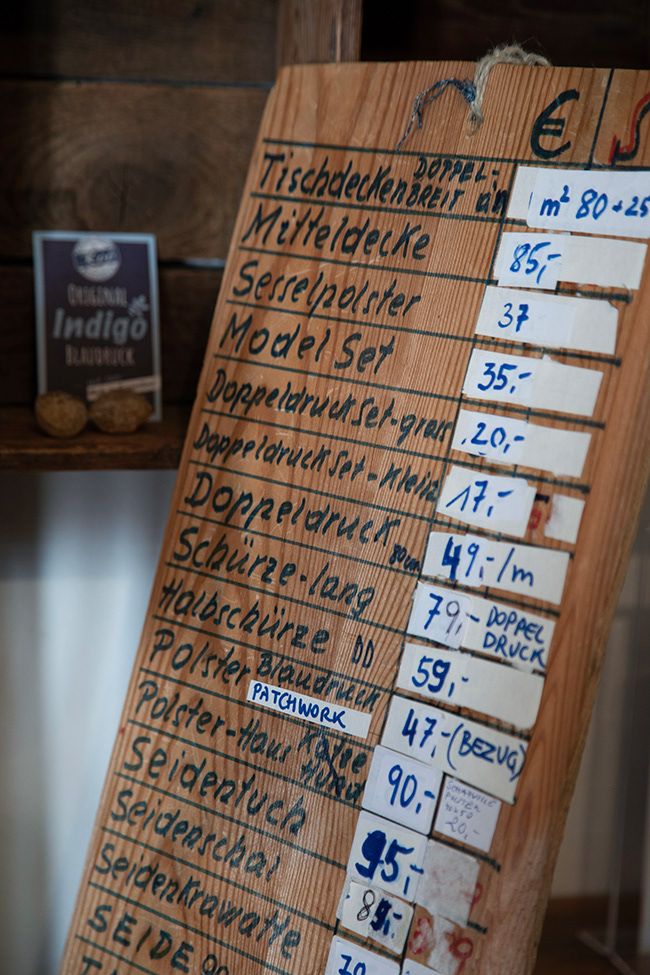 €
Tischdecken DOPPEL-BREIT m² 80 + 25
Mitteldecke 85,-
Sesselpolster 37
Model Set 35,-
Doppeldruck Set-gross 20,-
Doppeldruck Set-Klein 17,-
Doppeldruck 80cm 49,-/m
Schürze-lang 79,- DOPPEL DRUCK
Halbschürze DD 59,-
Polster Blaudruck 47,- (BEZUG)
PATCHWORK
Polster-Haus Katze Hund 90,-
POLSTER
20,-
Seidentuch 95,-
Seidenschal
Seidenkrawatte
SEIDE 90
ORIGINAL
Indigo
BLAUDRUCK